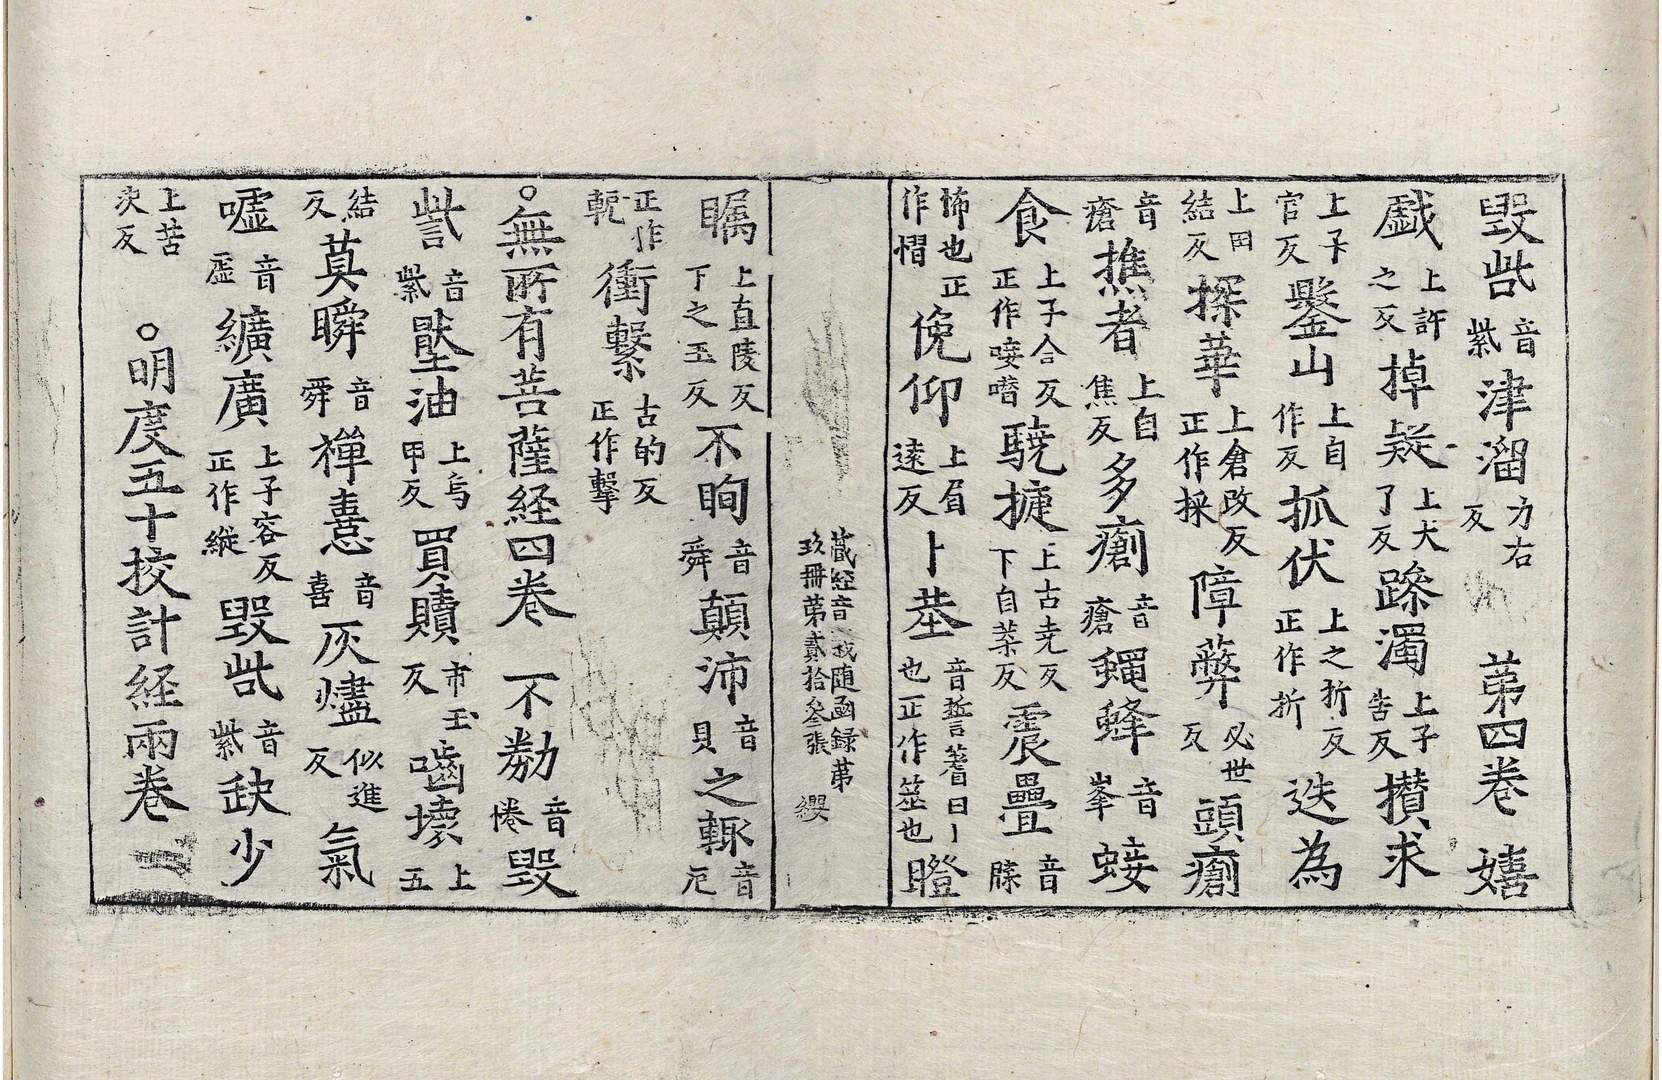 毀呰音紫津溜力右反　第四卷　嬉
戱上許之反掉疑上犬了反蹂濁上子告反攢求
上子官反鑿山上自作反抓伏上之折反正作折迭為
上田結反採華上倉改反正作採障弊必世反頭瘡
音瘡撨者上自焦反多瘡音瘡蠅蜂音峯蛟
食上子合反正作唼噆驍捷上古尭反下自葉反震疊音牒
怖也正作慴俛仰上眉遠反卜葁音誓蓍曰卜也正作筮也瞪
藏經音義隨函録苐
玖冊苐貳拾叄張　纓
矚上直陵反下之玉反不眴音舜顛沛音貝之輙音厄
正作軛衝繫古的反正作擊
○無所有菩薩経四卷　不勌音惓毀
訾音紫壓油上烏甲反買贖市玉反嚙壞上五
結反莫瞬音舜襌憙音喜灰燼似進反氣
嘘音虛纊廣上子容反正作縱毀呰音紫缺少
上苦決反　○明度五十挍計経兩卷